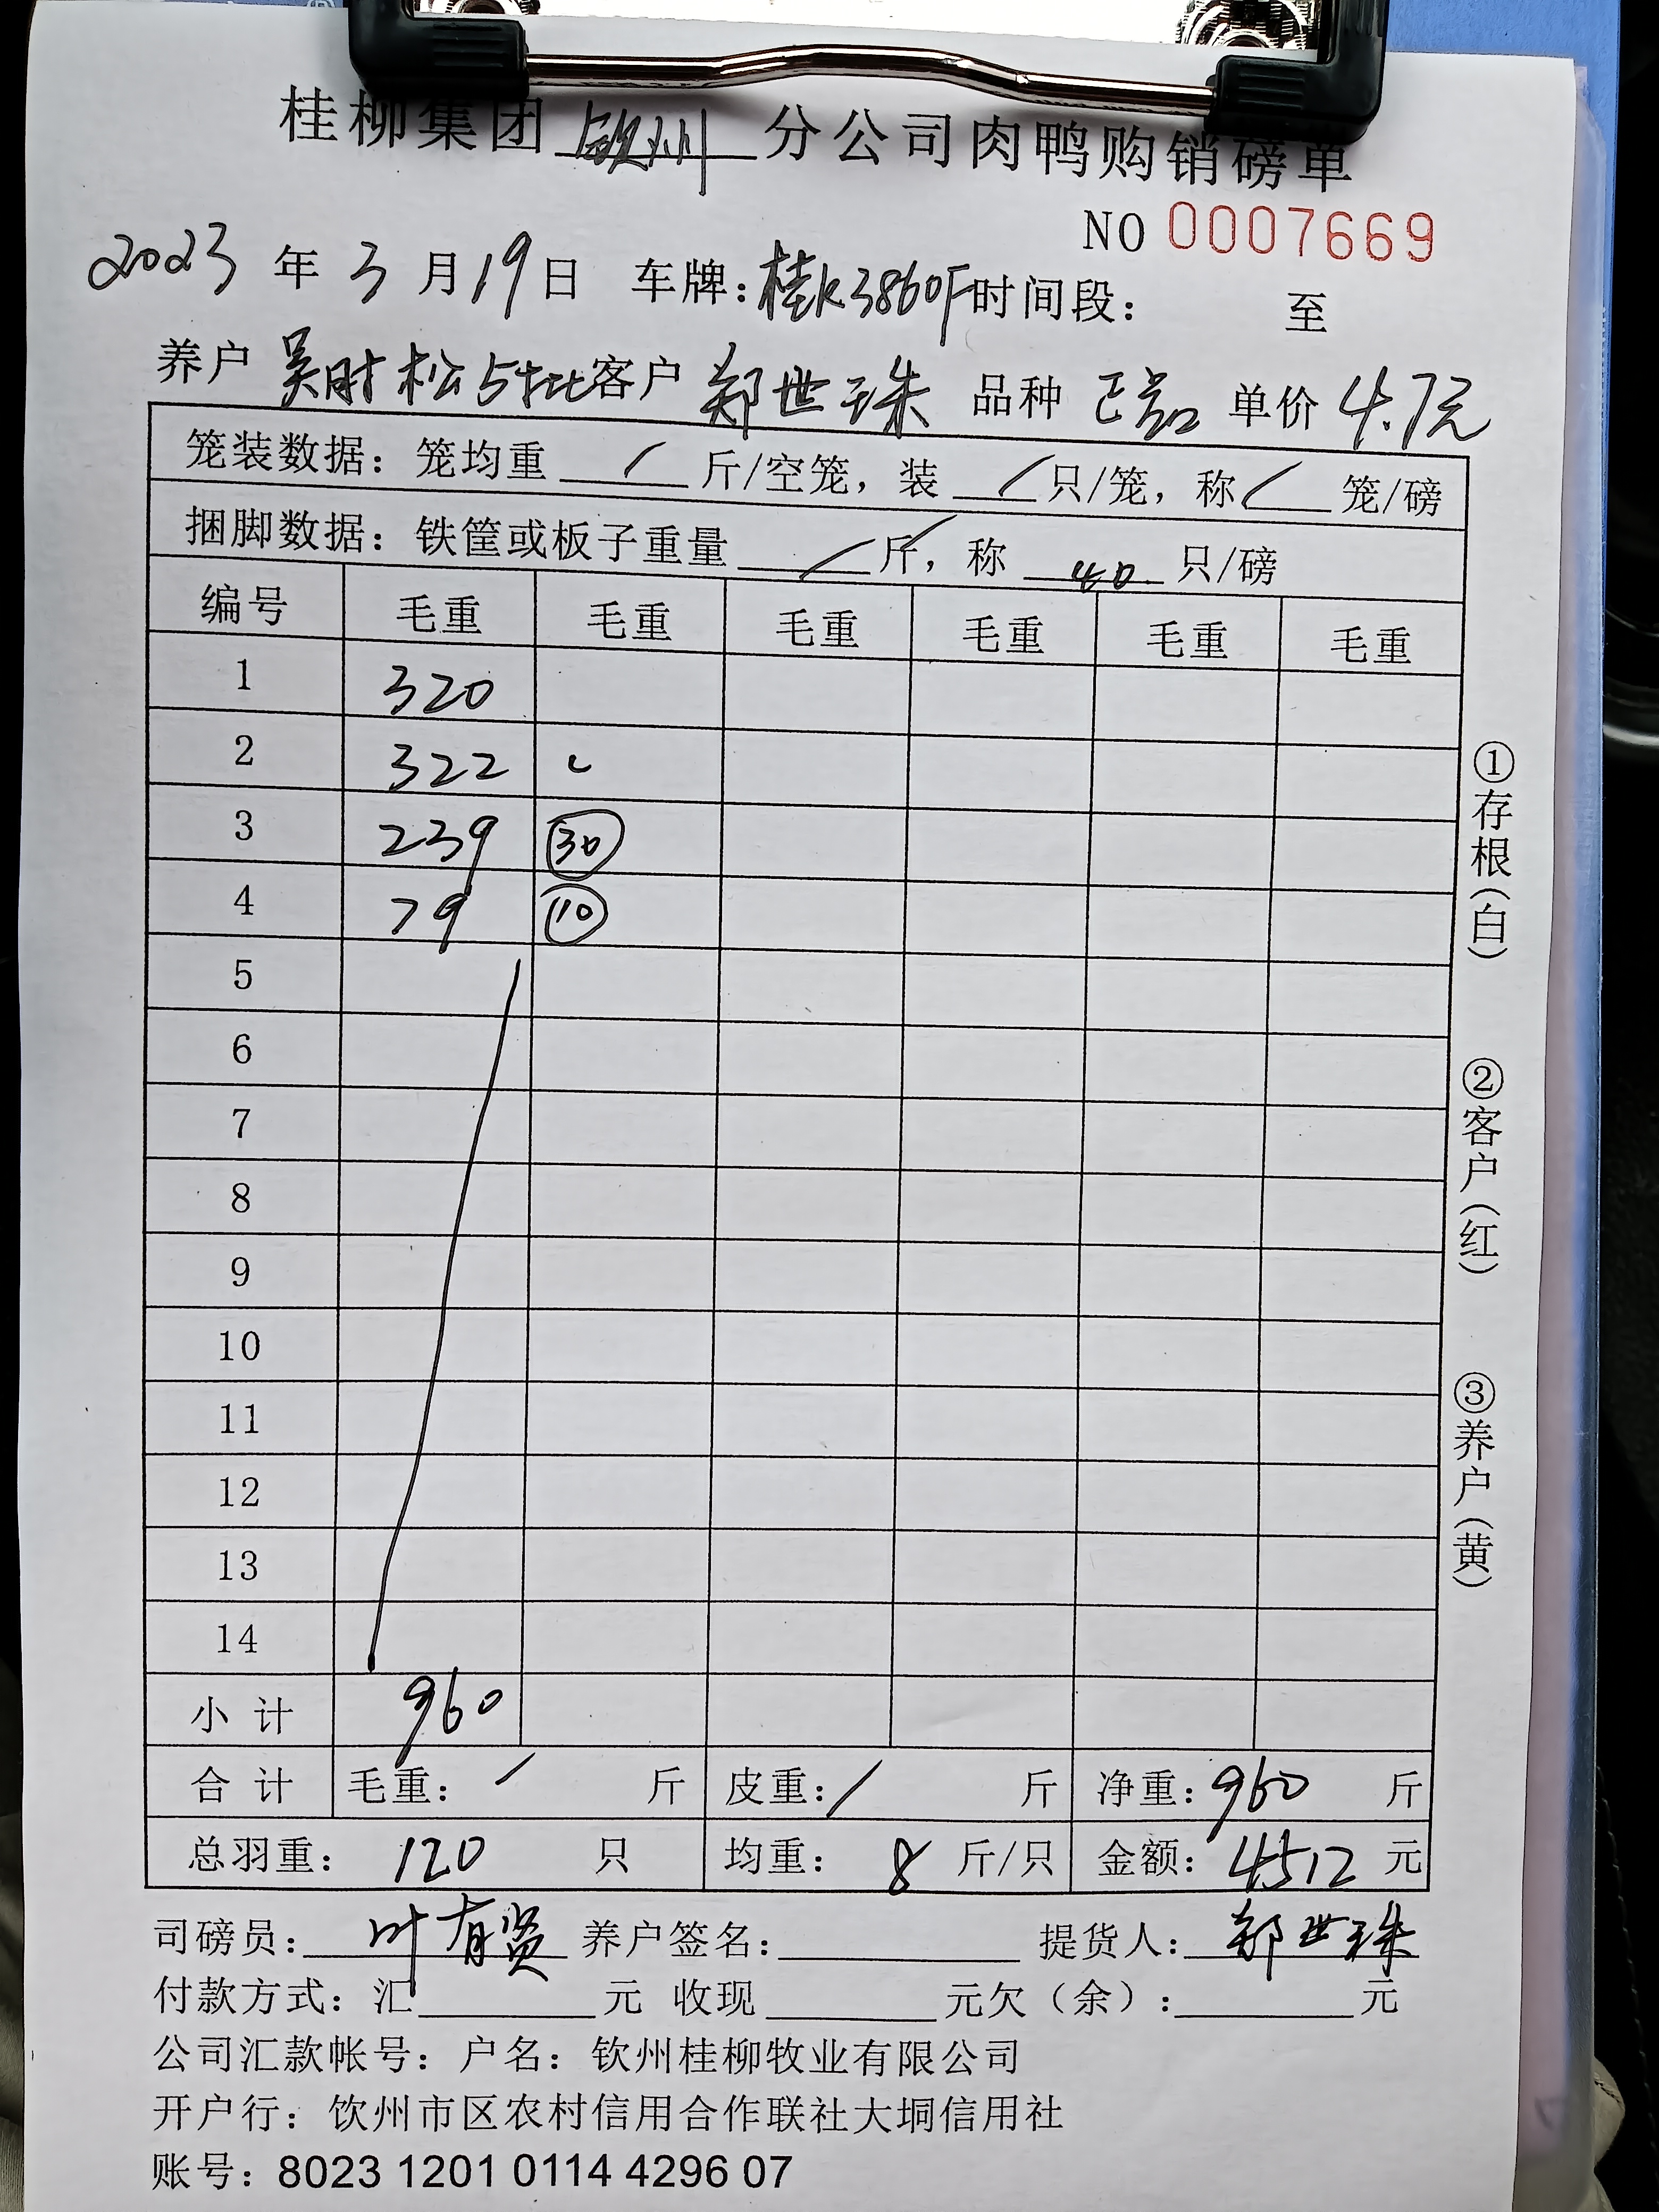 桂柳集团钦州分公司肉鸭购销磅单
NO 0007669
2023年3月19日 车牌：桂K3860F 时间段： 至
养户 吴时松5批 客户 郑世珠 品种 正品 单价 4.7元
笼装数据：笼均重 / 斤/空笼，装 / 只/笼，称 / 笼/磅
捆脚数据：铁筐或板子重量 / 斤，称 40 只/磅
编号 毛重 毛重 毛重 毛重 毛重 毛重
1 320
2 322
3 239 30
4 79 10
5
6
7
8
9
10
11
12
13
14
小计 960
合计 毛重： / 斤 皮重： / 斤 净重：960 斤
总羽重： 120 只 均重： 8 斤/只 金额：4512 元
司磅员：叶有贤 养户签名： 提货人：郑世珠
付款方式：汇 元 收现 元欠（余）： 元
公司汇款帐号：户名：钦州桂柳牧业有限公司
开户行：饮州市区农村信用合作联社大垌信用社
账号：8023 1201 0114 4296 07
①存根（白）
②客户（红）
③养户（黄）